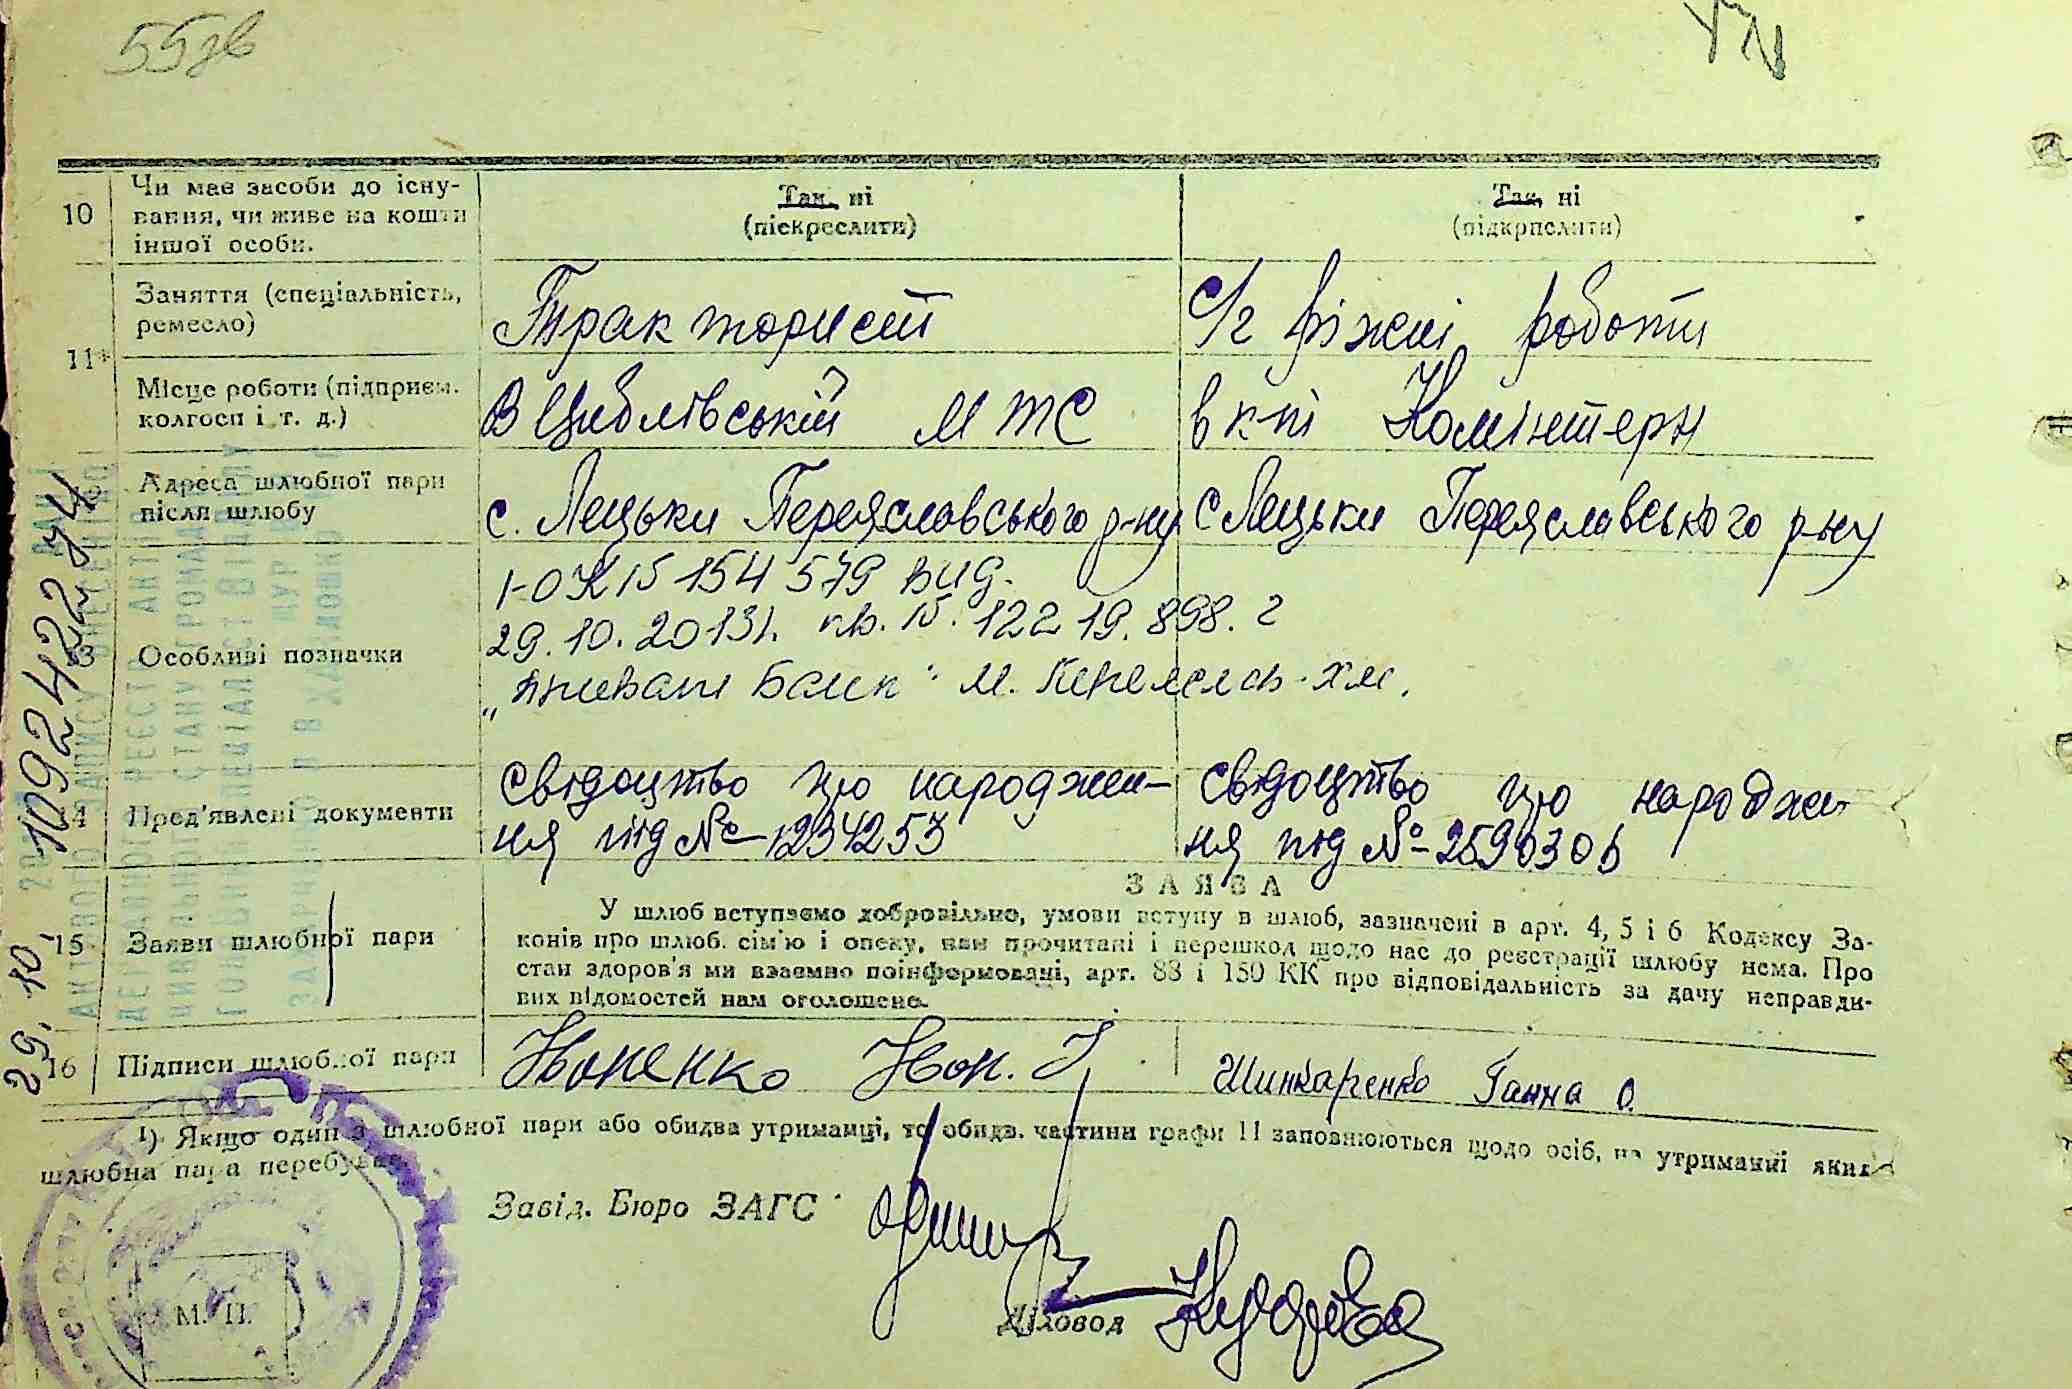 55зв
10 Чи має засоби до існу-
вання, чи живе на кошти
іншої особи.
Так, ні
(піскреслити)
Так, ні
(підкрпслити)
11*
Заняття (спеціальність,
ремесло)
Тракторист
С/г ріжні роботи
Місце роботи (підприєм.
колгосп і т. д.)
В Циблівській МТС
в к-пі Комінтерн
Адреса шлюбної пари
після шлюбу
с. Лецьки Переяславського р-ну
с Лецьки Переяславського р-ну
13 Особливі позначки
І-ОК № 154579 вид.
29.10.2013р. кв. № 12219.898.2
„Приват Банк" м. Переяслав-Хм.
14 Пред'явлені документи
Свідоцтво про народжен-
ня під № 1234253
Свідоцтво про народжен
ня під №
15 Заяви шлюбної пари
ЗАЯВА
У шлюб вступаємо добровільно, умови вступу в шлюб, зазначені в арт. 4, 5 і 6 Кодексу За-
конів про шлюб, сім'ю і опеку, нам прочитані і перешкод щодо нас до реєстрації шлюбу нема. Про
стан здоров'я ми взаємно поінформовані, арт. 88 і 150 КК про відповідальність за дачу неправди-
вих відомостей нам оголошено.
16 Підписи шлюбної пари
Кононенко Кон. І
Шинкаренко Ганна О.
¹) Якщо один з шлюбної пари або обидва утриманці, то обидв. частини графи 11 заповнюються щодо осіб, на утриманні яких
шлюбна пара перебуває.
Завід. Бюро ЗАГС
Діловод
М. П.
29.10.
109242274